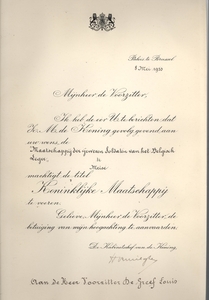 Paleis te Brussel
8 Mei 1930
Mijnheer de Voorzitter,
Ik heb de eer U te berichten dat
Z. M. de Koning gevolg gevend aan
uw wens, de
Maatschappij der gewezen Soldaten van het Belgisch
Leger,
te
machtigt de titel
Koninklijke Maatschappij
te voeren.
Gelieve, Mijnheer de Voorzitter, de
betuiging van mijn hoogachting te aanvaarden.
De Kabinetschef van de Koning,
Aan de Heer Voorzitter De Greef Louis